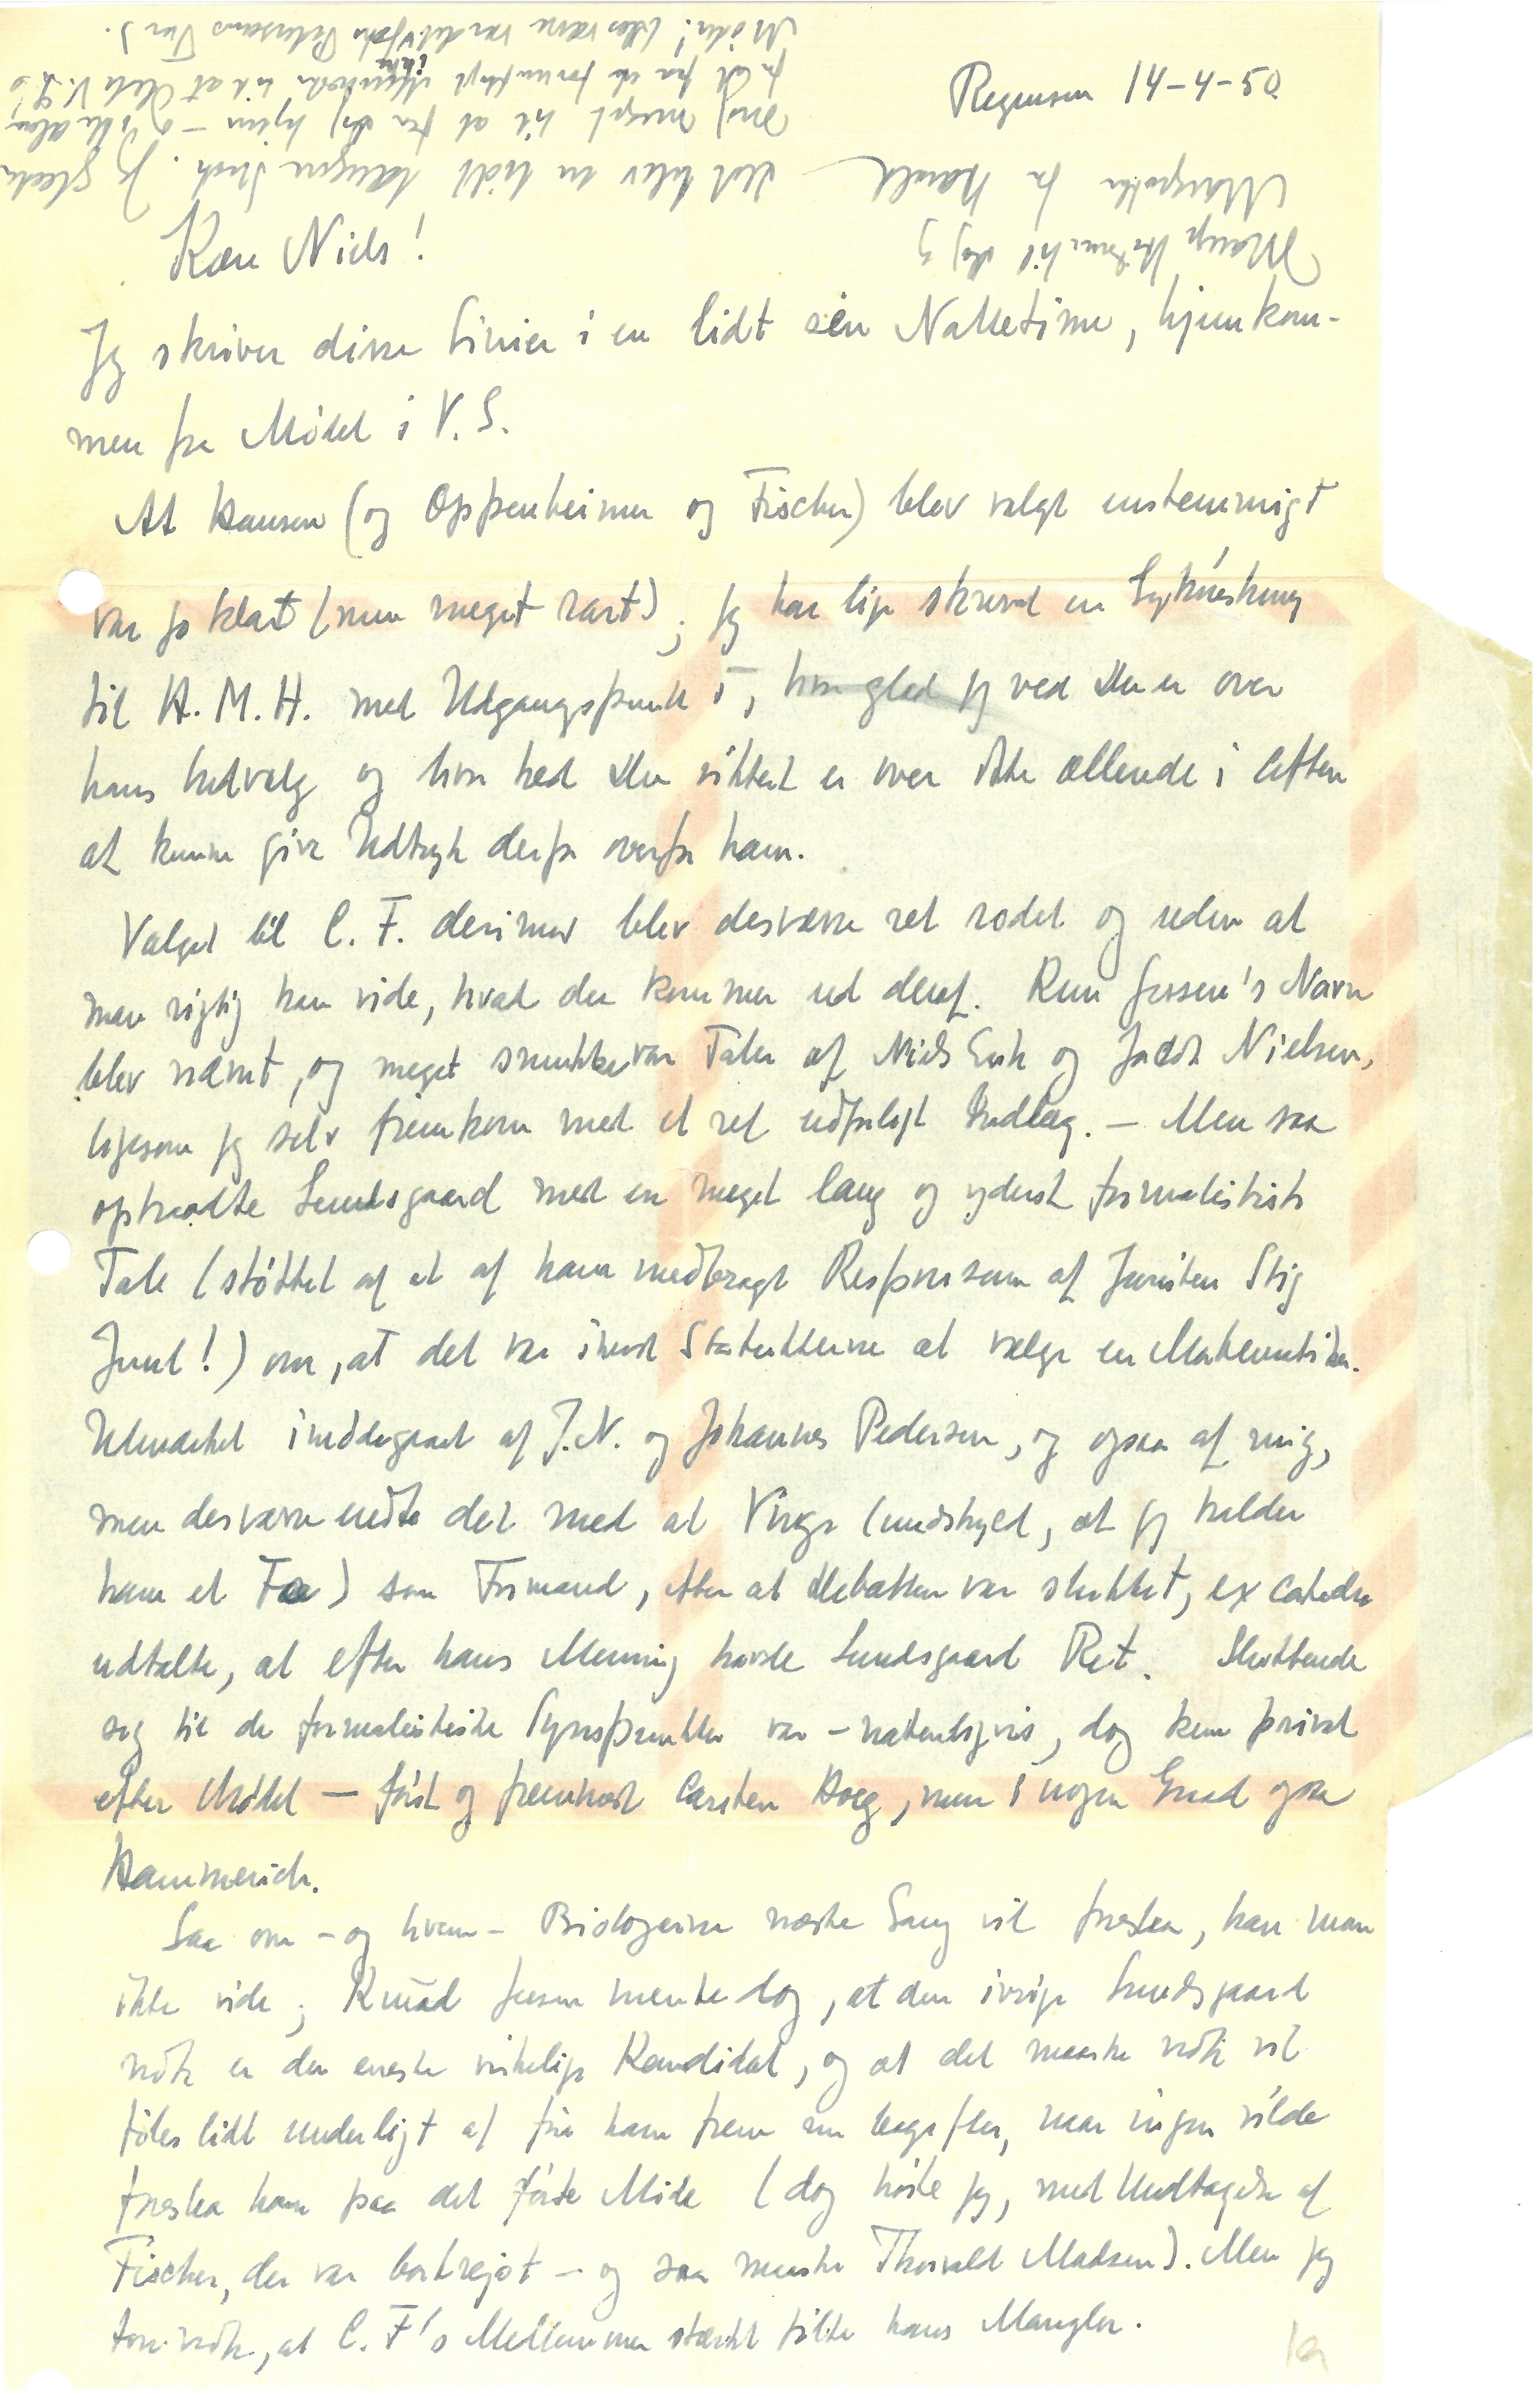 Regensen 14-4-50
Kære Niels!
Jeg skriver disse Linier i en lidt sén Nattetime, hjemkom-
men fra Mødet i V. S.
At Hansen (og Oppenheimer og Fischer) blev valgt enstemmigt
var jo klart (men meget rart); jeg har lige skrevet en Lykønskning
til H. M. H. med Udgangspunkt i, hvor glad jeg ved Du er over
hans Indvalg og hvor ked Du sikkert er over ikke allerede i Aften
at kunne give Udtryk derfor overfor ham.
Valget til C. F. derimod blev desværre ret rodet og uden at
man rigtig kan vide, hvad der kommer ud deraf. Kun Jessen's Navn
blev nævnt, og meget smukke var Taler af Niels Erik og Jakob Nielsen,
ligesom jeg selv fremkom med et ret udførligt Indlæg. – Men saa
optraadte Lundsgaard med en meget lang og yderst formalistisk
Tale (støttet af et af ham medbragt Responsum af Juristen Stig
Juul!) om, at det var imod Statutterne at vælge en Matematiker.
Udmærket imødegaaet af J.N. og Johannes Pedersen, og ogsaa af mig,
men desværre endte det med at Viggo (undskyld, at jeg kalder
ham et Fæ) som Formand, efter at Debatten var sluttet, ex catedra
udtalte, at efter hans Mening havde Lundsgaard Ret. Sluttende
sig til de formalistiske Synspunkter var – naturligvis, dog kun privat
efter Mødet – først og fremmest Carsten Høeg, men i nogen Grad ogsaa
Hammerich.
Saa om – og hvem – Biologerne næste Gang vil foreslaa, kan man
ikke vide; Knud Jessen mente dog, at den ivrige Lundsgaard
nok er den eneste virkelige Kandidat, og at det maaske nok vil
føles lidt underligt at føre ham frem nu bagefter, naar ingen vilde
foreslaa ham paa det første Møde (dog hørte jeg, med Undtagelse af
Fischer, der var bortrejst – og saa maaske Thorvald Madsen). Men jeg
tror nok, at C. F's Medlemmer stærkt følte hans Mangler.
Det blev en lidt længere Snak. Jeg glæder
mig meget til at se Dig hjem –
Mange Hilsner til Dig og
Margrethe fra Harald